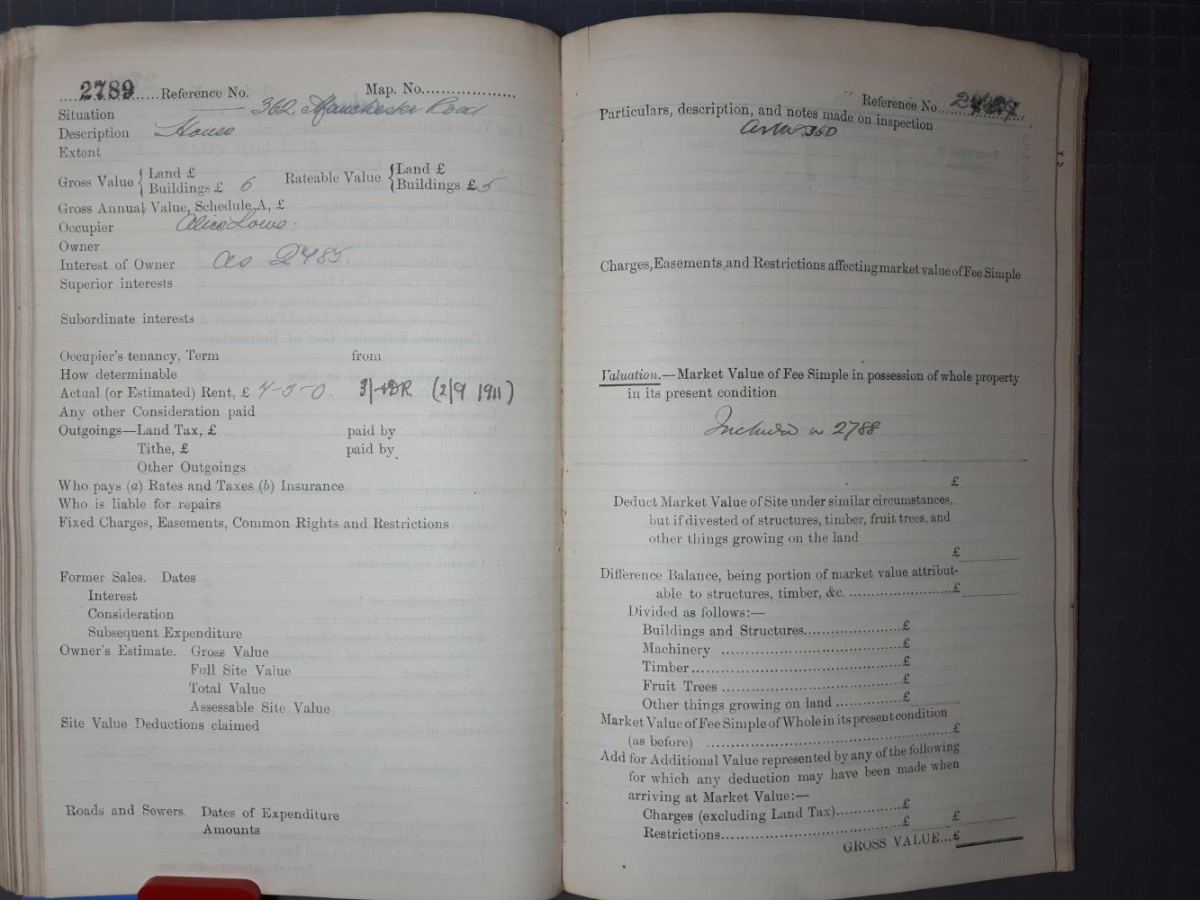 2789 Reference No. Map. No.
Situation 362 Manchester Road
Description House
Extent
Gross Value { Land £ Rateable Value { Land £
Buildings £ 6 Buildings £ 5
Gross Annual Value, Schedule A, £
Occupier Alice Lowe
Owner
Interest of Owner as 2485.
Superior interests
Subordinate interests
Occupier's tenancy, Term from
How determinable
Actual (or Estimated) Rent, £ (2/9 1911)
Any other Consideration paid
Outgoings—Land Tax, £ paid by
Tithe, £ paid by
Other Outgoings
Who pays (a) Rates and Taxes (b) Insurance
Who is liable for repairs
Fixed Charges, Easements, Common Rights and Restrictions
Former Sales. Dates
Interest
Consideration
Subsequent Expenditure
Owner's Estimate. Gross Value
Full Site Value
Total Value
Assessable Site Value
Site Value Deductions claimed
Roads and Sewers. Dates of Expenditure
Amounts
Reference No.
Particulars, description, and notes made on inspection
360
Charges, Easements, and Restrictions affecting market value of Fee Simple
Valuation.—Market Value of Fee Simple in possession of whole property
in its present condition
Included in 2788
£
Deduct Market Value of Site under similar circumstances,
but if divested of structures, timber, fruit trees, and
other things growing on the land
£
Difference Balance, being portion of market value attribut-
able to structures, timber, &c. £
Divided as follows:—
Buildings and Structures £
Machinery £
Timber £
Fruit Trees £
Other things growing on land £
Market Value of Fee Simple of Whole in its present condition
(as before) £
Add for Additional Value represented by any of the following
for which any deduction may have been made when
arriving at Market Value:—
Charges (excluding Land Tax) £
Restrictions £ £
GROSS VALUE...£